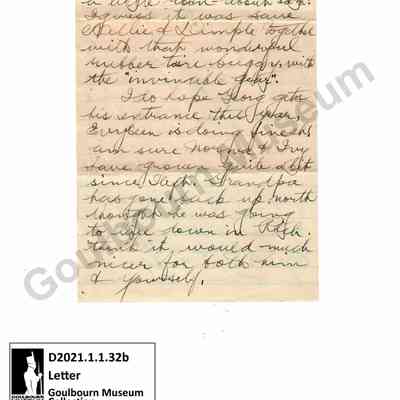 I guess it was sure
Nellie & Dimple together
with that wonderful
rubber tire buggy, with
the "invincible gang".
I do hope Georg gets
his entrance this year,
Evryeen is doing fine &
am sure Norma & Ivy
have grown quite a bit
since I left. Grandpa
has gone back up north
thought he was going
to live down in Rich.
think it would much
nicer for both him
& yourself.
Goulbourn Museum
Goulbourn Museum
D2021.1.1.32b
Letter
Goulbourn Museum
Collection
GOULBOURN